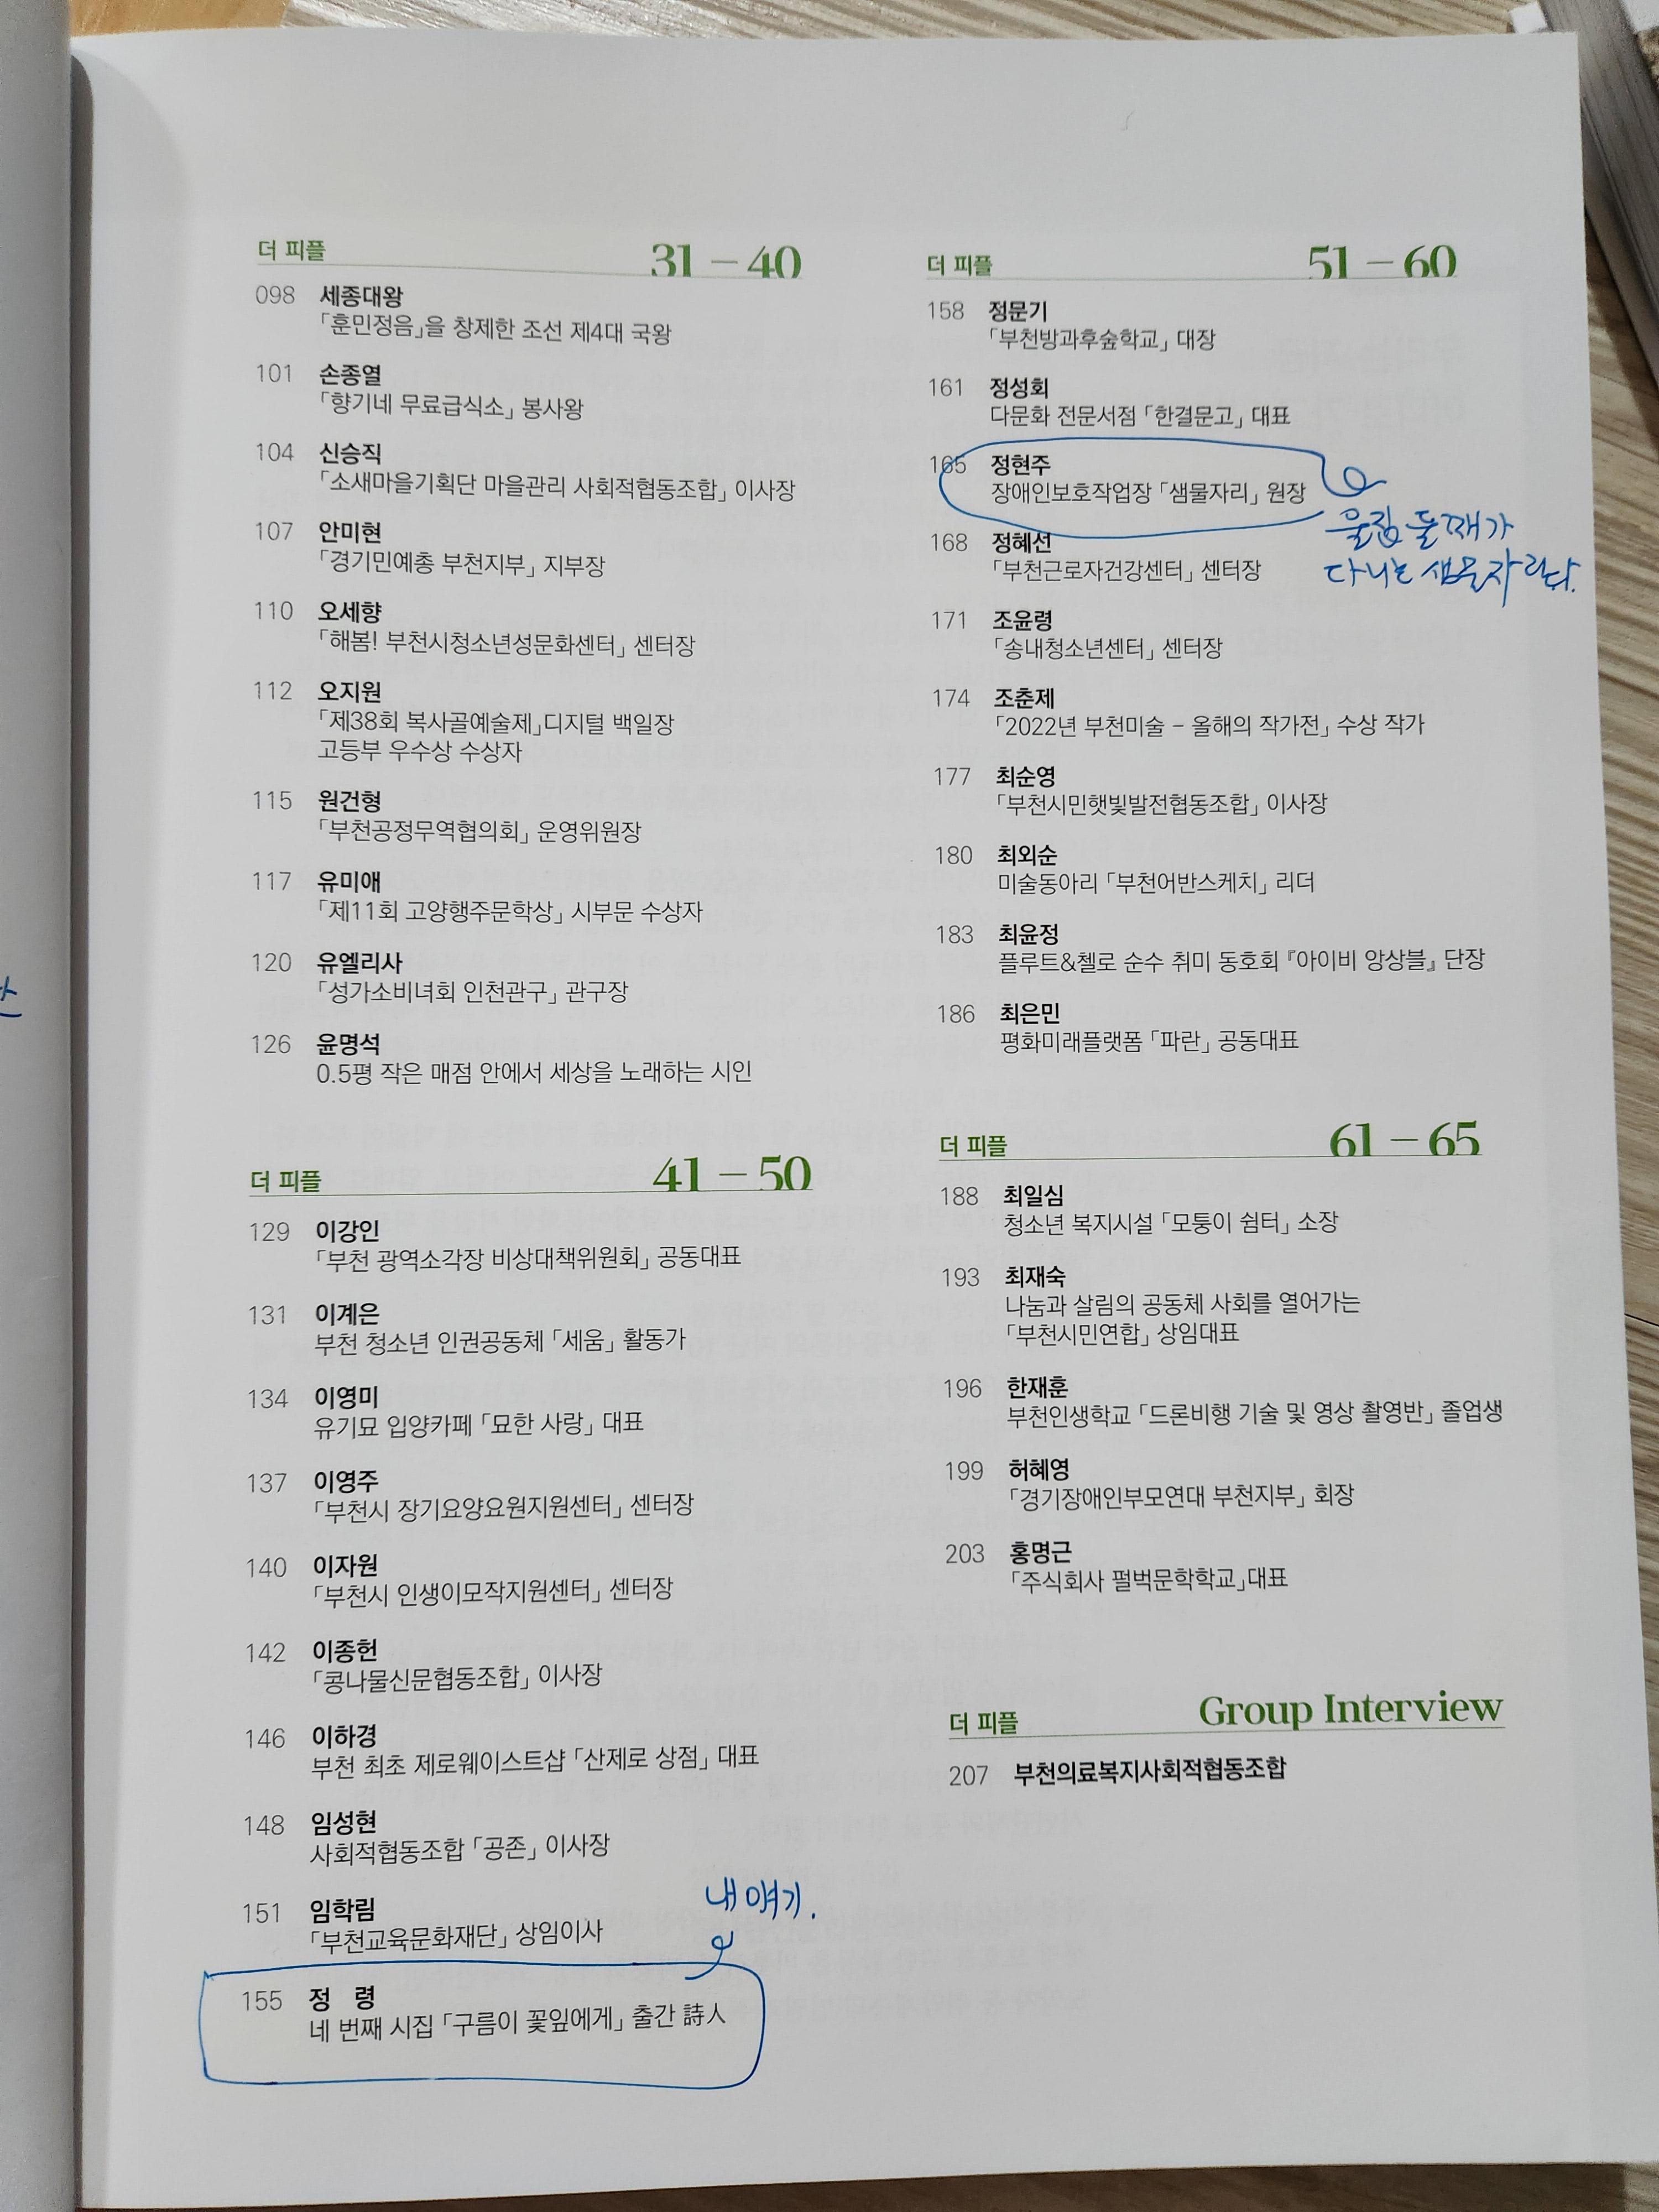 더 피플 31 – 40
098 세종대왕
「훈민정음」을 창제한 조선 제4대 국왕
101 손종열
「향기네 무료급식소」 봉사왕
104 신승직
「소새마을기획단 마을관리 사회적협동조합」 이사장
107 안미현
「경기민예총 부천지부」 지부장
110 오세향
「해봄! 부천시청소년성문화센터」 센터장
112 오지원
「제38회 복사골예술제」디지털 백일장
고등부 우수상 수상자
115 원건형
「부천공정무역협의회」 운영위원장
117 유미애
「제11회 고양행주문학상」 시부문 수상자
120 유엘리사
「성가소비녀회 인천관구」 관구장
126 윤명석
0.5평 작은 매점 안에서 세상을 노래하는 시인
더 피플 41 – 50
129 이강인
「부천 광역소각장 비상대책위원회」 공동대표
131 이계은
부천 청소년 인권공동체 「세움」 활동가
134 이영미
유기묘 입양카페 「묘한 사랑」 대표
137 이영주
「부천시 장기요양요원지원센터」 센터장
140 이자원
「부천시 인생이모작지원센터」 센터장
142 이종헌
「콩나물신문협동조합」 이사장
146 이하경
부천 최초 제로웨이스트샵 「산제로 상점」 대표
148 임성현
사회적협동조합 「공존」 이사장
151 임학림
「부천교육문화재단」 상임이사
내 얘기.
155 정 령
네 번째 시집 「구름이 꽃잎에게」 출간 詩人
더 피플 51 – 60
158 정문기
「부천방과후숲학교」 대장
161 정성회
다문화 전문서점 「한결문고」 대표
165 정현주
장애인보호작업장 「샘물자리」 원장
울집 둘째가
다니는 샘물자리다.
168 정혜선
「부천근로자건강센터」 센터장
171 조윤령
「송내청소년센터」 센터장
174 조춘제
「2022년 부천미술 – 올해의 작가전」 수상 작가
177 최순영
「부천시민햇빛발전협동조합」 이사장
180 최외순
미술동아리 「부천어반스케치」 리더
183 최윤정
플루트&첼로 순수 취미 동호회 『아이비 앙상블』 단장
186 최은민
평화미래플랫폼 「파란」 공동대표
더 피플 61 – 65
188 최일심
청소년 복지시설 「모퉁이 쉼터」 소장
193 최재숙
나눔과 살림의 공동체 사회를 열어가는
「부천시민연합」 상임대표
196 한재훈
부천인생학교 「드론비행 기술 및 영상 촬영반」 졸업생
199 허혜영
「경기장애인부모연대 부천지부」 회장
203 홍명근
「주식회사 펄벅문학학교」대표
더 피플 Group Interview
207 부천의료복지사회적협동조합